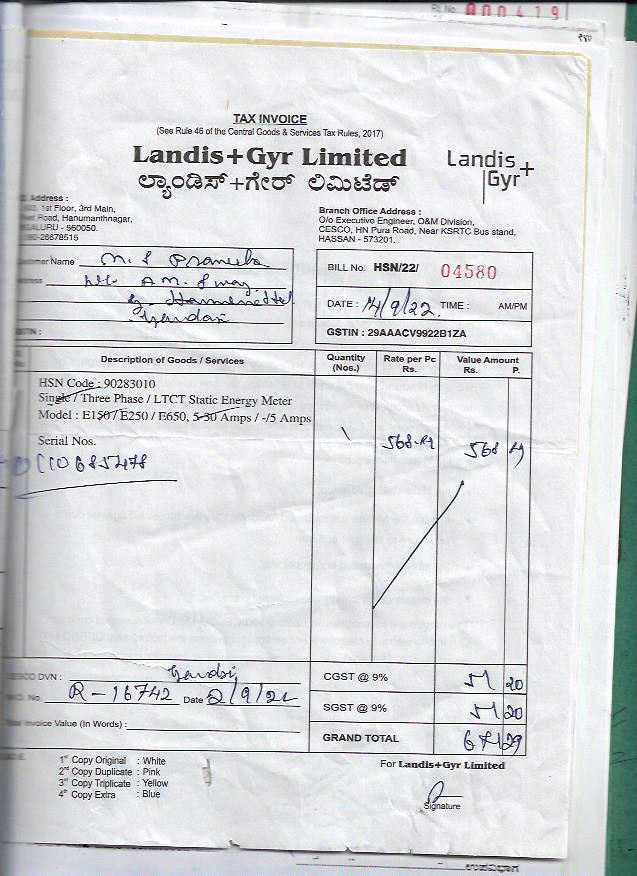 000419
TAX INVOICE
(See Rule 46 of the Central Goods & Services Tax Rules, 2017)
Landis+Gyr Limited
ಲ್ಯಾಂಡಿಸ್+ಗೇರ್ ಲಿಮಿಟೆಡ್
Landis+
Gyr
Address :
1st Floor, 3rd Main,
Road, Hanumanthnagar,
- 560050.
26678515
Branch Office Address :
O/o Executive Engineer, O&M Division,
CESCO, HN Pura Road, Near KSRTC Bus stand,
HASSAN - 573201.
Name M. S
A M.
BILL No. HSN/22/ 04580
DATE : 14/9/22 TIME : AM/PM
GSTIN : 29AAACV9922B1ZA
Description of Goods / Services
Quantity (Nos.)
Rate per Pc Rs.
Value Amount Rs. P.
HSN Code : 90283010
Single / Three Phase / LTCT Static Energy Meter
Model : E150 / E250 / E650, 5-30 Amps / -/5 Amps
Serial Nos.
568
568
DVN :
No. R-16742 Date 2/9/22
Invoice Value (In Words) :
CGST @ 9% 51 20
SGST @ 9% 51 20
GRAND TOTAL 671 29
1st Copy Original : White
2nd Copy Duplicate : Pink
3rd Copy Triplicate : Yellow
4th Copy Extra : Blue
For Landis+Gyr Limited
Signature